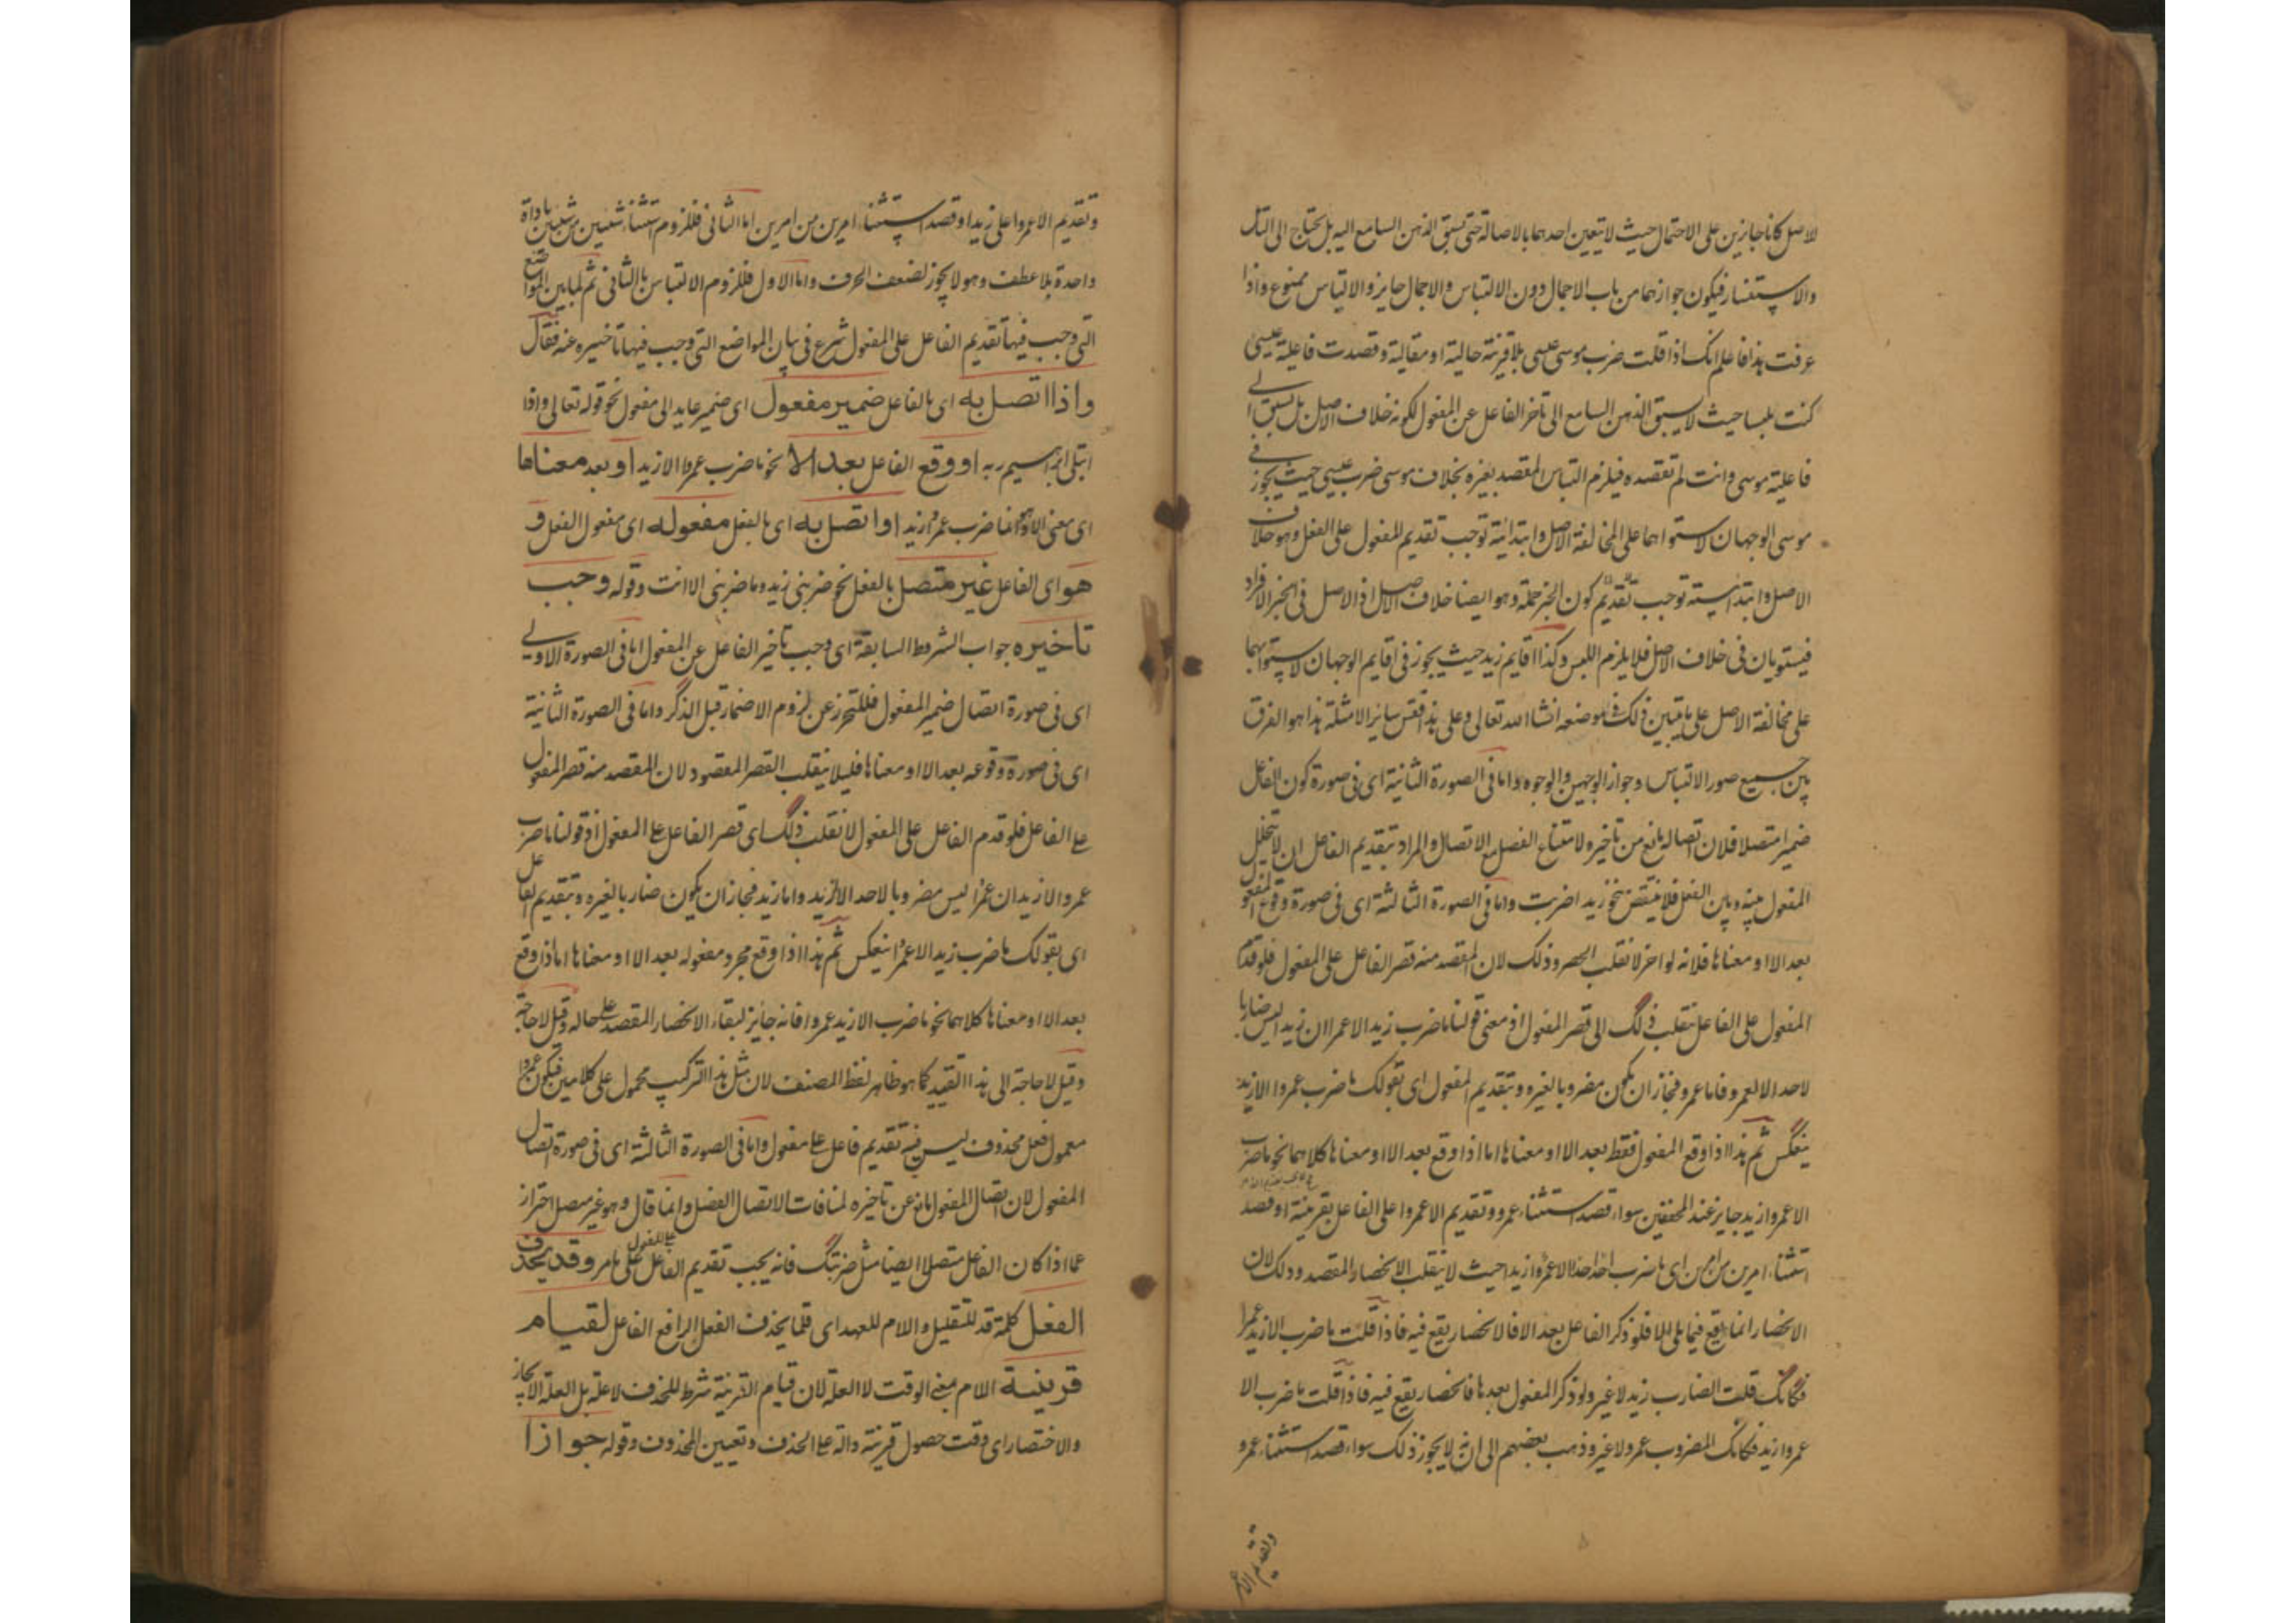 الاصل كانا جازين على الاحتمال حيث لا يتعين احدهما بالاصالة حتى يسبق الذهن السامع اليه بل يحتاج الى التأمل
والاستفسار فيكون جوازهما من باب الاجمال دون الالتباس والاجمال جايز والالتباس ممنوع واذا
عرفت هذا فاعلم انك اذا قلت ضرب موسى عيسى بلا قرينة حالية او مقالية وقصدت فاعلية عيسى
كنت ملبسا حيث لا يسبق الذهن السامع الى تاخر الفاعل عن المفعول لكونه خلاف الاصل بل يسبق الى
فاعلية موسى وانت لم تقصده فيلزم التباس المقصد بغيره بخلاف موسى ضرب عيسى حيث يجوز في
موسى الوجهان لاستوائهما على المخالفة الاصل وابتدائية توجب تقديم المفعول على الفعل وهو خلاف
الاصل وابتدائيته توجب تقديم كون الخبر جملة وهو ايضا خلاف الاصل اذ الاصل في الخبر الافراد
فيستويان في خلاف الاصل فلا يلزم اللبس وكذا اقايم زيد حيث يجوز في اقايم الوجهان لاستوائهما
على مخالفة الاصل على ما يتبين ذلك في موضعه انشاء الله تعالى وعلى هذا فقس ساير الامثلة هذا هو الفرق
بين جميع صور الالتباس وجواز الوجهين والوجوه واما في الصورة الثانية اى في صورة كون الفاعل
ضميرا متصلا فلان اتصاله مانع من تاخيره لامتناع الفصل مع الاتصال والمراد بتقديم الفاعل ان لا يتخلل
المفعول بينه وبين الفعل فلا ينتقض بنحو زيدا ضربت واما في الصورة الثالثة اى في صورة وقوع المفعول
بعد الا او معناها فلانه لو اخر لانقلب الحصر وذلك لان المقصد منه قصر الفاعل على المفعول فلو قدم
المفعول على الفاعل ينقلب ذلك الى قصر المفعول اذ معنى قولنا ما ضرب زيد الا عمرا ان زيدا ليس ضاربا
لاحد الا لعمرو فاما عمرو فجاز ان يكون مضروبا لغيره وبتقديم المفعول اى بقولك ما ضرب عمروا الا زيد
ينعكس ثم هذا اذا وقع المفعول فقط بعد الا او معناها اما اذا وقع بعد الا او معناها كلاهما نحو ما ضرب
الا عمروا زيد جايز عند المحققين سواء قصد استثناء عمرو وتقديم الا عمروا على الفاعل بقرينة او قصد
استثناء امرين من امرين اى ما ضرب احد احدا الا عمروا زيد حيث لا ينقلب الانحصار المقصد وذلك لان
الانحصار انما يقع فيما يلى الا فلو ذكر الفاعل بعد الا فالانحصار يقع فيه فاذا قلت ما ضرب الا زيد عمرا
فكانك قلت الضارب زيد لا غير ولو ذكر المفعول بعدها فانحصار يقع فيه فاذا قلت ما ضرب الا
عمروا زيد فكانك المضروب عمرو لا غير وذهب بعضهم الى انه لا يجوز ذلك سواء قصد استثناء عمرو
وتقديم الا عمر
وتقديم الا عمروا على زيد او قصد استثناء امرين من امرين اما الثانى فللزوم استثناء شيئين من شيئين باداة
واحدة بلا عطف وهو لا يجوز لضعف الحرف واما الاول فللزوم الالتباس بالثانى ثم لما بين المواضع
التى وجب فيها تقديم الفاعل على المفعول شرع في بيان المواضع التى وجب فيها تاخيره عنه فقال
واذا اتصل به اى بالفاعل ضمير مفعول اى ضمير عايد الى مفعول نحو قوله تعالى واذا
ابتلى ابراهيم ربه او وقع الفاعل بعد الا نحو ما ضرب عمروا الا زيد او بعد معناها
اى معنى الا نحو انما ضرب عمرا زيد او اتصل به اى بالفعل مفعوله اى مفعول الفعل و
هو اى الفاعل غير متصل بالفعل نحو ضربنى زيد وما ضربنى الا انت وقوله وجب
تاخيره جواب الشروط السابقة اى وجب تاخير الفاعل عن المفعول اما في الصورة الاولى
اى في صورة اتصال ضمير المفعول فللتحرز عن لزوم الاضمار قبل الذكر واما في الصورة الثانية
اى في صورة وقوعه بعد الا او معناها فليلا ينقلب القصر المقصود لان المقصد منه قصر المفعول
على الفاعل فلو قدم الفاعل على المفعول لانقلب ذلك اى قصر الفاعل على المفعول اذ قولنا ما ضرب
عمروا الا زيد ان عمرا ليس مضروبا لاحد الا لزيد واما زيد فجاز ان يكون ضاربا لغيره وبتقديم الفاعل
اى بقولك ما ضرب زيد الا عمرا ينعكس ثم هذا اذا وقع مجرد مفعوله بعد الا او معناها اما اذا وقع
بعد الا او معناها كلاهما نحو ما ضرب الا زيد عمروا فانه جايز لبقاء الانحصار المقصد على حاله وقيل لا حاجة
وقيل لا حاجة الى هذا القيد كما هو ظاهر لفظ المصنف لان مثل هذا التركيب محمول على كلامين فيكون عمروا
معمول فعل محذوف ليس فيه تقديم فاعل على مفعول واما في الصورة الثالثة اى في صورة اتصال
المفعول لان اتصال المفعول مانع عن تاخيره لمنافات الاتصال الفصل وانما قال وهو غير متصل احتراز
عما اذا كان الفاعل متصلا ايضا مثل ضربتك فانه يجب تقديم الفاعل على المفعول على ما مر وقد يحذف
الفعل كلمة قد للتقليل واللام للعهد اى قلما يحذف الفعل الرافع الفاعل لقيام
قرينة اللام بمعنى الوقت لا العلة لان قيام القرينة شرط للحذف لا علة بل العلة الايجاز
والاختصار اى وقت حصول قرينة دالة على الحذف وتعيين المحذوف وقوله جوازا